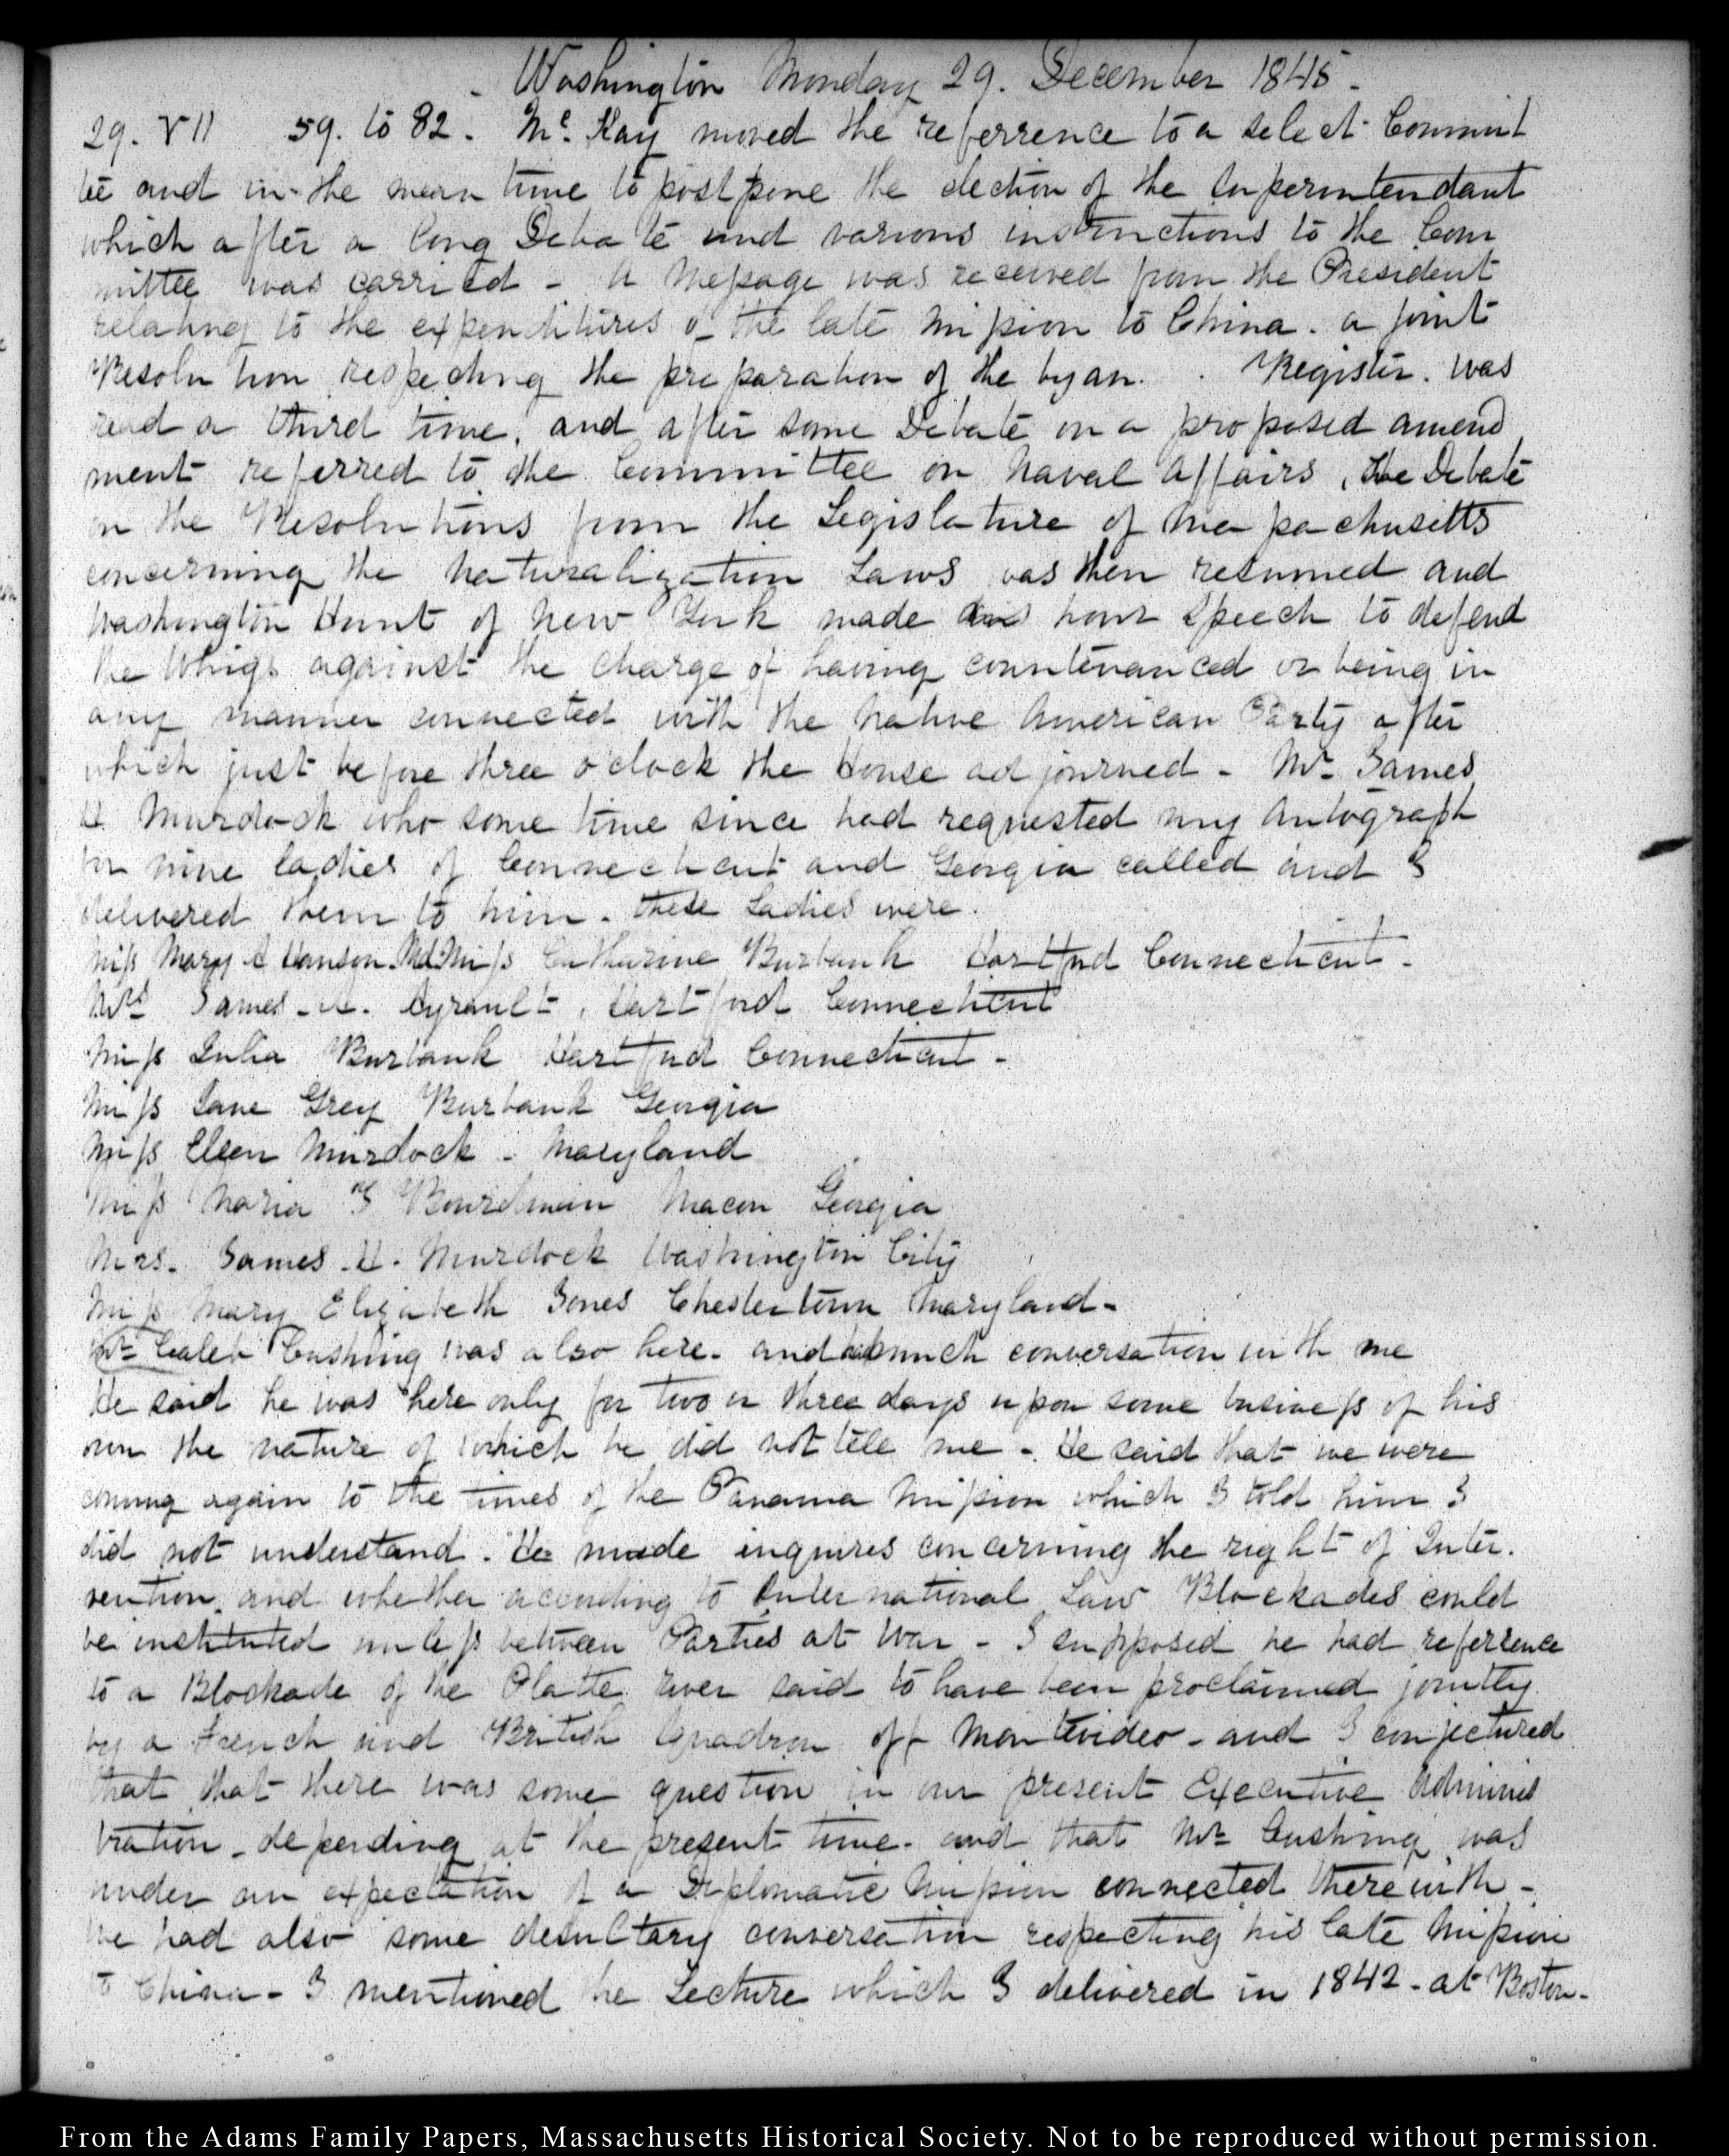 Washington Monday 29. December 1845.
29. VII 59. to 82. Mc. Kay moved the referrence to a select Committ
tee and in the mean time to postpone the election of the Superintendant
which after a long Debate and various instructions to the Com
mittee was carried - A Message was received from the President
relating to the expenditures of the late Mission to China. a joint
Resolution respecting the preparation of the Register. was
read a third time, and after some Debate on a proposed amend
ment referred to the Committee on Naval Affairs, the Debate
on the Resolutions from the Legislature of Massachusetts
concerning the Naturalization Laws was then resumed and
Washington Hunt of New York made hour Speech to defend
the Whigs against the charge of having countenanced or being in
any manner connected with the Native American Party after
which just before three o'clock the House adjourned - Mr James
H Murdock who some time since had requested my Autograph
for nine ladies of Connecticut and Georgia called and I
delivered them to him. these Ladies were.
Miss Mary A Hanson. Md. Miss Catharine Burbank Hartford Connecticut.
Mrs James. Ayrault, Hartford Connecticut
Miss Julia Burbank Hartford Connecticut -
Miss Jane Grey Burbank Georgia
Miss Ellen Murdock - Maryland
Miss Maria G Boardman Macon Georgia
Mrs. James H. Murdock Washington City
Miss Mary Elizabeth Jones Chestertown Maryland -
Mr Caleb Cushing was also here. and had much conversation with me
He said he was here only for two or three days upon some business of his
own the nature of which he did not tell me - He said that we were
coming again to the times of the Panama Mission which I told him I
did not understand. He made inquires concerning the right of Inter.
vention, and whether according to International Law Blockades could
be instituted unless between Parties at War - I supposed he had referrence
to a Blockade of the Platte river said to have been proclaimed jointly
by a French and British Squadron off Montevideo - and I conjectured
that that there was some question in our present Executive Adminis
tration - depending at the present time. and that Mr Cushing was
under an expectation of a Diplomatic Mission connected therewith -
We had also some desultary conversation respecting his late Mission
to China - I mentioned the Lecture which I delivered in 1842 - at Boston -
From the Adams Family Papers, Massachusetts Historical Society. Not to be reproduced without permission.